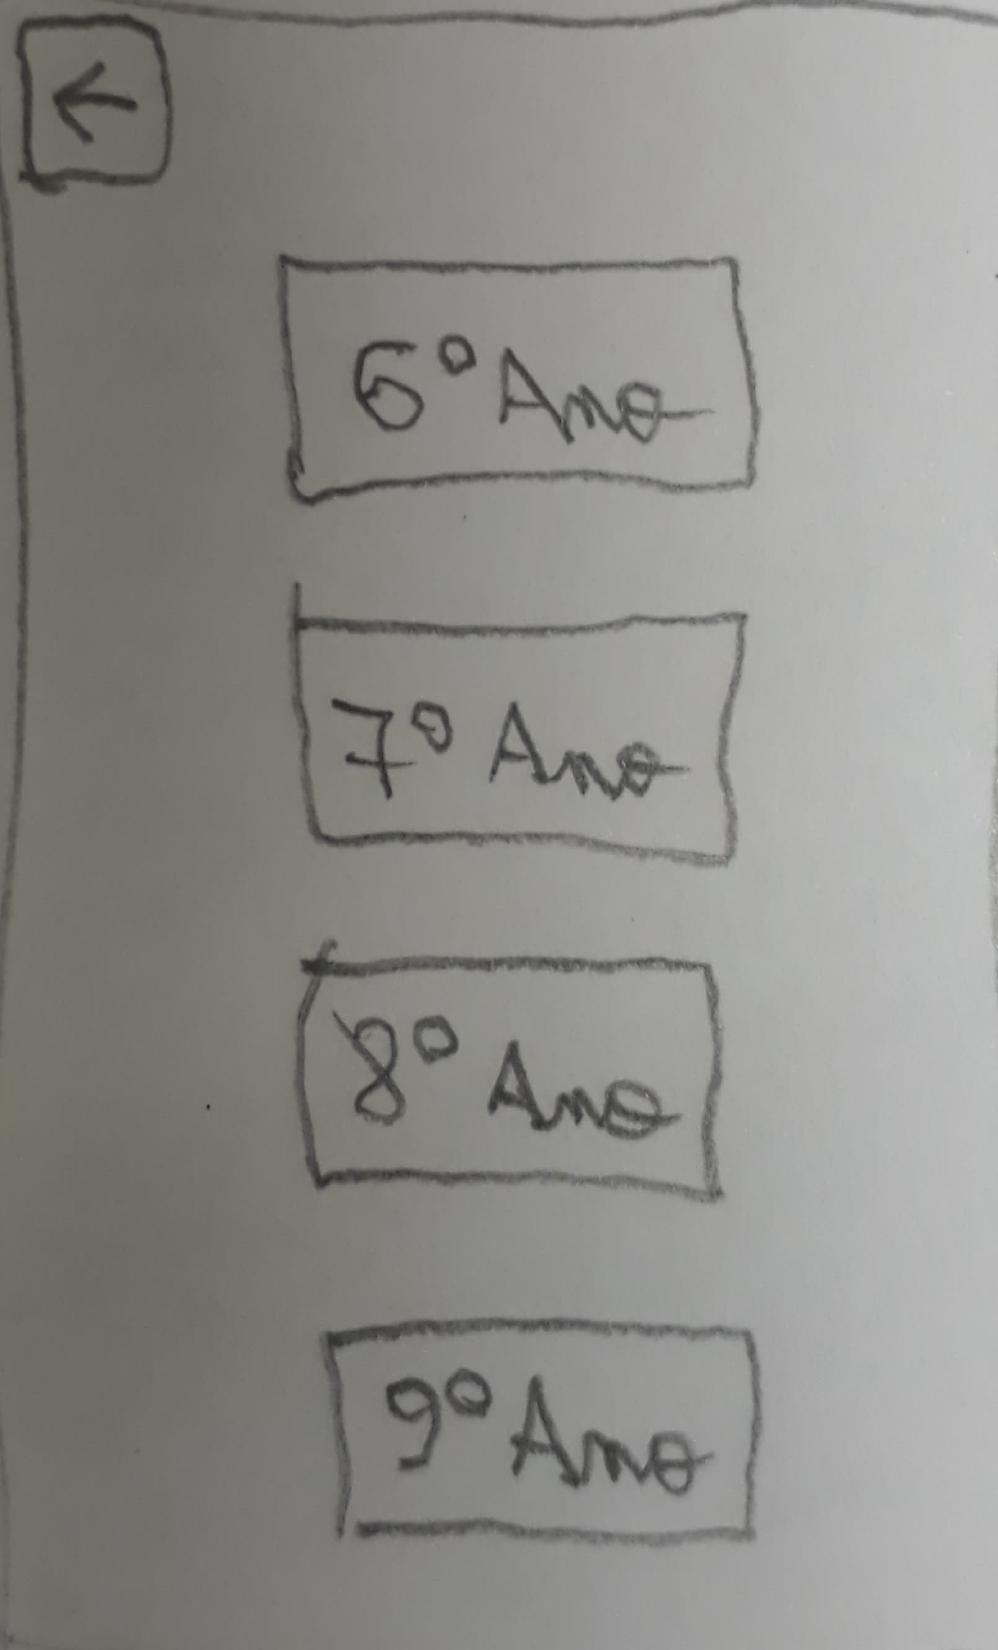 6º Ano
7º Ano
8º Ano
9º Ano